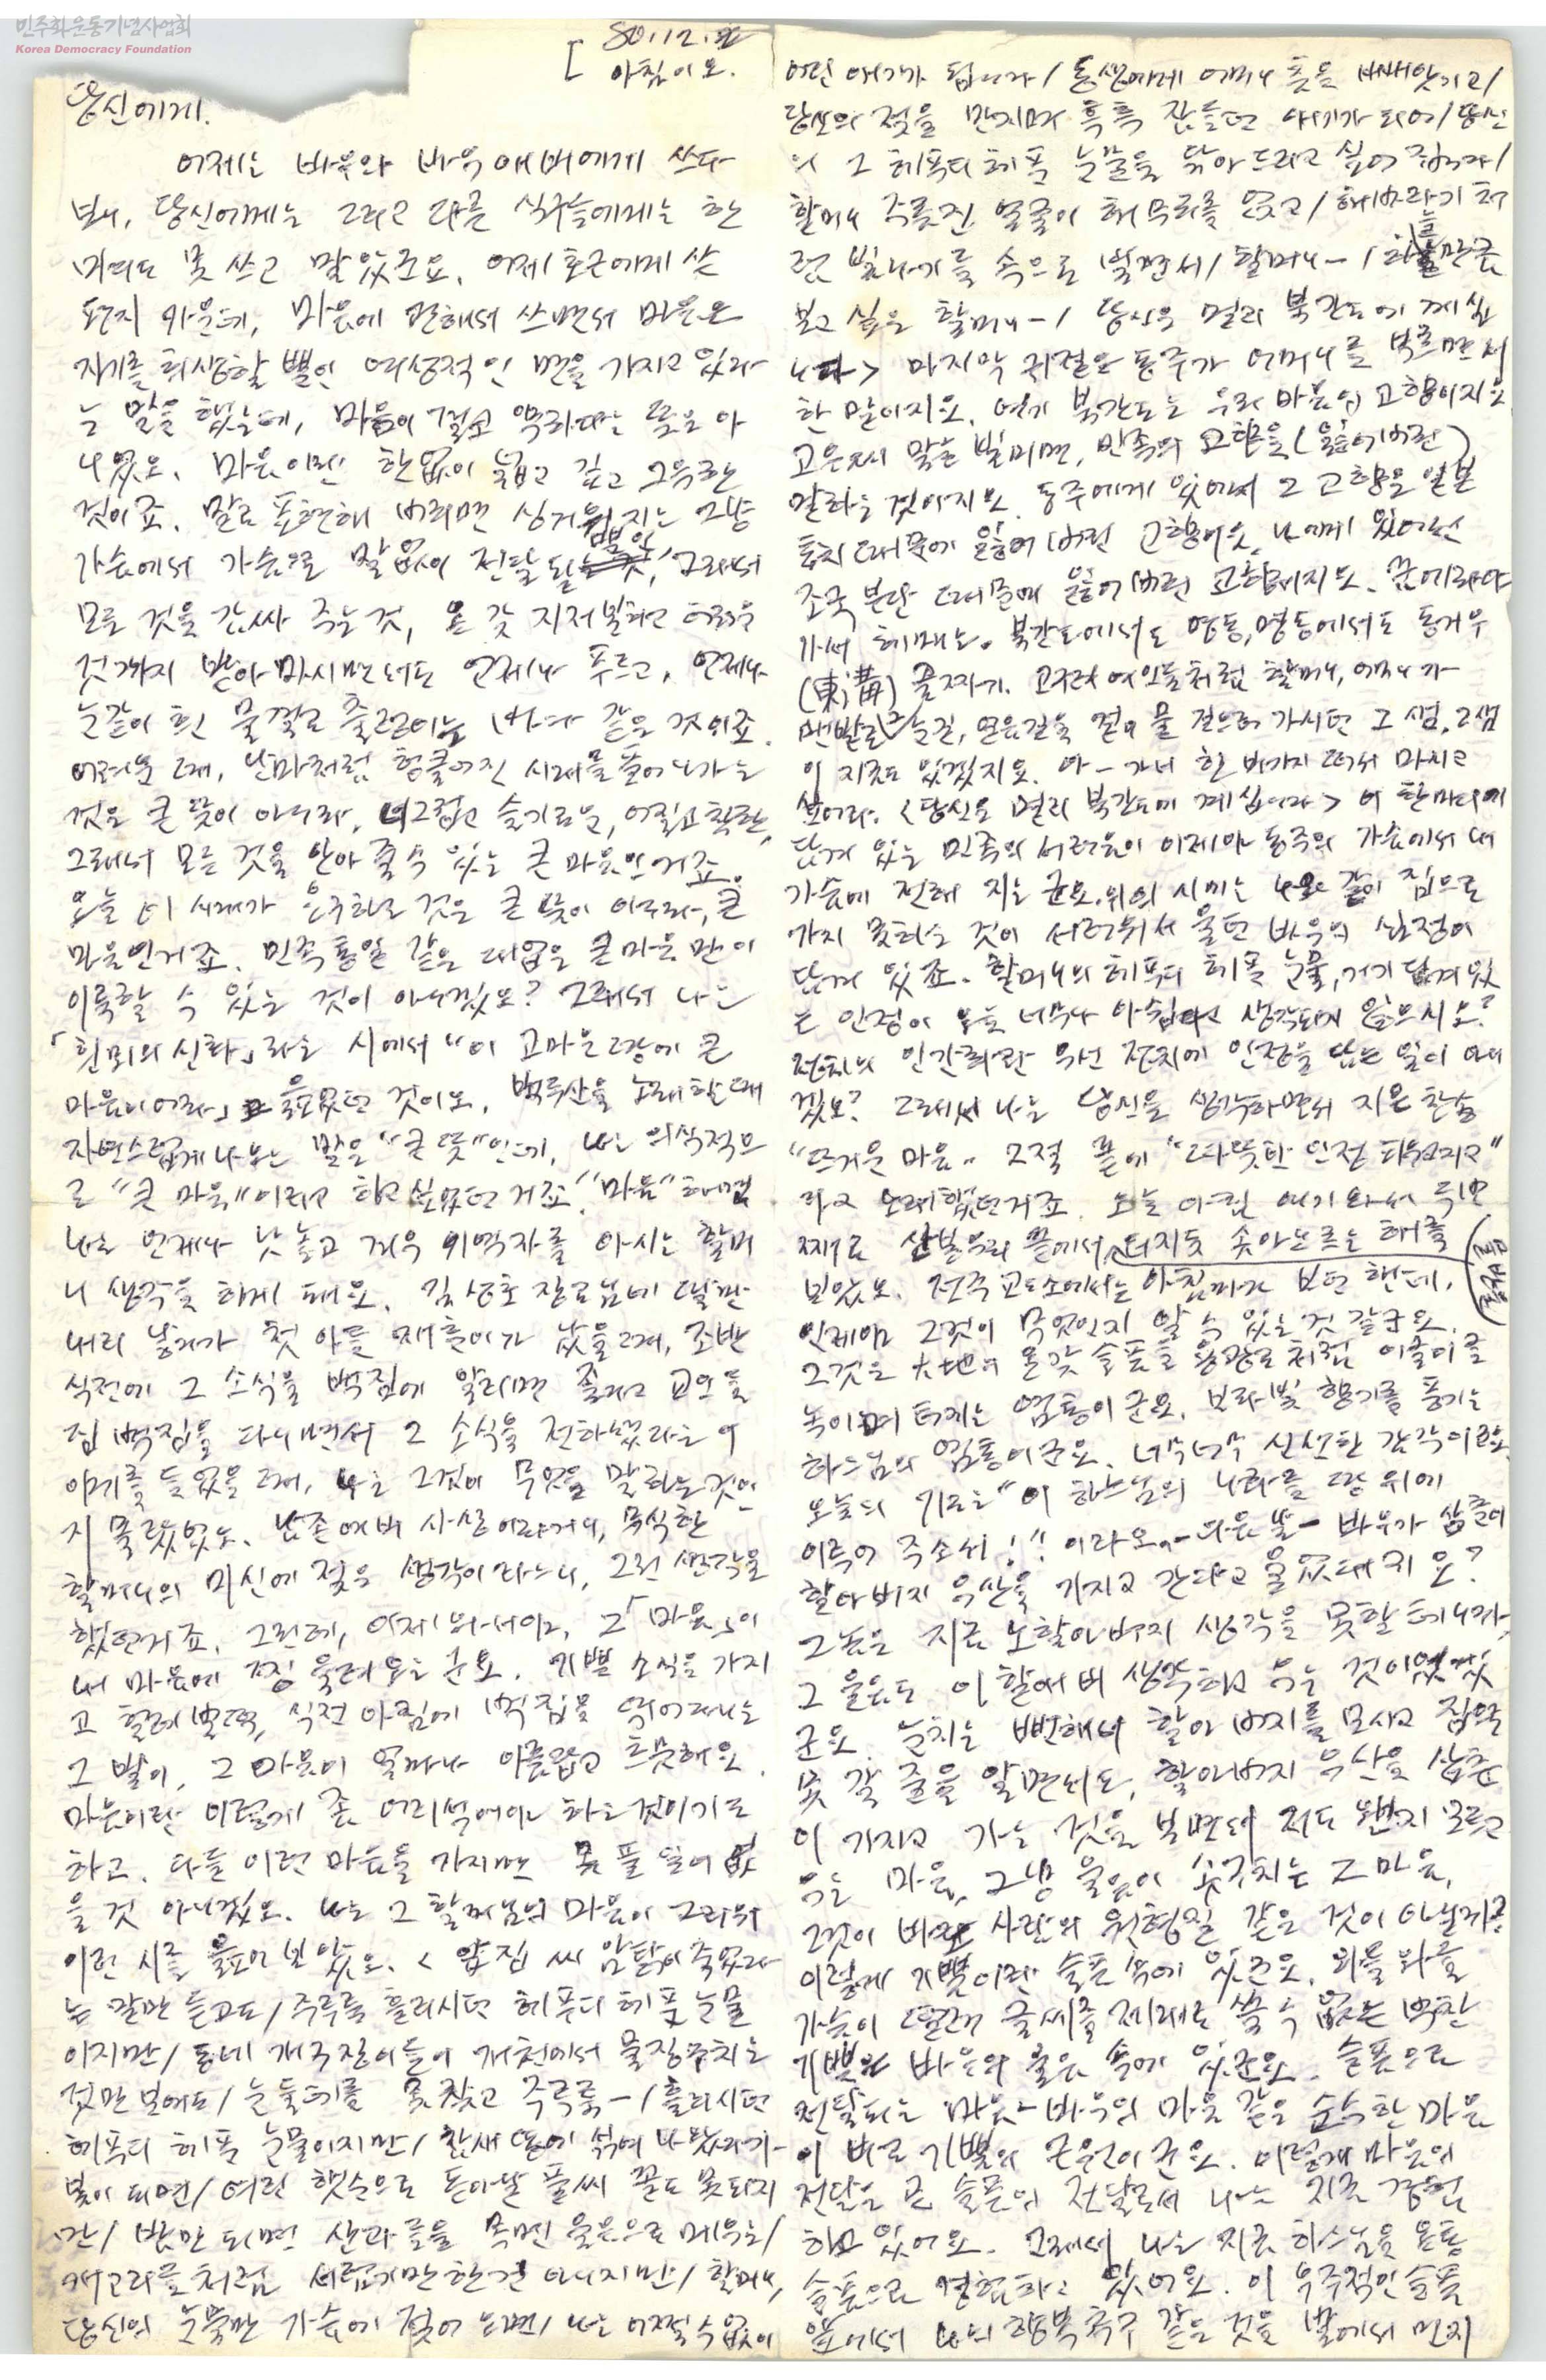 민주화운동기념사업회
Korea Democracy Foundation
80.12.
아침이오.
당신에게.
어제는 바우와 바우 애비에게 쓰다
보니, 당신에게는 그리고 다른 식구들에게는 한
마디도 못 쓰고 말았군요. 어제 호근에게 쓴
편지 가운데, 마음에 관해서 쓰면서 마음은
자기를 희생할 뿐인 여성적인 면을 가지고 있다
는 말을 했는데, 마음이 결코 약하다는 뜻은 아
니었오. 마음이란 한없이 넓고 깊고 그윽한
것이죠. 말로 표현해 버리면 싱거워지는 그냥
가슴에서 가슴으로 말없이 전달될 뿐인, 그래서
모든 것을 감싸 주는 것, 온갖 지저분하고 더러운
것까지 받아 마시면서도 언제나 푸르고, 언제나
눈같이 흰 물결로 출렁이는 바다 같은 것이죠.
어려운 때, 난마처럼 헝클어진 시대를 풀어나가는
것은 큰 뜻이 아니라, 너그럽고 슬기로운, 어질고 착한,
그래서 모든 것을 안아 줄 수 있는 큰 마음인 거죠.
오늘 이 시대가 요구하는 것은 큰 뜻이 아니라, 큰
마음인 거죠. 민족통일 같은 대업은 큰 마음만이
이룩할 수 있는 것이 아니겠오? 그래서 나는
「흰 뫼의 신화」라는 시에서 "이 고마운 땅에 큰
마음이어라" 읊었던 것이오. 백두산을 노래할 때
자연스럽게 나오는 말은 "큰 뜻"인데, 나는 의식적으
로 "큰 마음"이라고 하고 싶었던 거죠. "마음" 하면
나는 언제나 낫 놓고 겨우 기역자를 아시는 할머
니 생각을 하게 돼요. 김상호 장로님네 딸만
내리 낳다가 첫 아들 재훈이가 났을 때, 조반
식전에 그 소식을 백 집에 알리면 좋다고 교인들
집 백 집을 다니면서 그 소식을 전하셨다는 이
야기를 들었을 때, 나는 그것이 무엇을 말하는 것인
지 몰랐었오. 남존여비 사상이라거니, 무식한
할머니의 미신에 젖은 생각이라느니, 그런 생각을
했던 거죠. 그런데, 이제 와서야, 그 「마음」이
내 마음에 찡 울려오는군요. 기쁜 소식을 가지
고 헐레벌떡, 식전 아침에 백 집을 뛰어다니는
그 발이, 그 마음이 얼마나 아름답고 흐뭇해요.
마음이란 이렇게 좀 어리석어야 하는 것이기도
하고. 다들 이런 마음을 가지면 못 풀 일이 없
을 것 아니겠오. 나는 그 할머님의 마음이 그리워
이런 시를 읊어 보았오. <앞집 씨암탉이 죽었다
는 말만 듣고도/주루룩 흘리시던 헤프디 헤픈 눈물
이지만/동네 개구쟁이들이 개천에서 물장구치는
것만 보여도/눈 둘 데를 못 찾고 주루룩―/흘리시던
헤프디 헤픈 눈물이지만/참새 똥에 섞여 나왔다가
봄이 되면/여린 햇순으로 돋아날 풀씨 꼴도 못되지
만/밤만 되면 산과 들을 목멘 울음으로 메우는/
개고리들처럼 서럽지만한 건 아니지만/할머니,
당신의 눈물만 가슴에 젖어 오면/나는 어쩔 수 없이
어린 애기가 됩니다/동생에게 어머니 품을 빼앗기고/
당신의 젖을 만지며 흑흑 잠들던 애기가 되어/당신
의 그 헤프디 헤픈 눈물을 닦아 드리고 싶어집니다/
할머니 주름진 얼굴이 해무리를 쓰고/해바라기처
럼 빛나기를 속으로 빌면서/할머니―/하늘만큼
보고 싶은 할머니―/당신은 멀리 북간도에 계십
니다> 마지막 귀절은 동주가 어머니를 부르면서
한 말이지요. 여기 북간도는 우리 마음의 고향이지요.
고은씨의 말을 빌리면, 민족의 고향을 (잃어버린)
말하는 것이지요. 동주에게 있어서 그 고향은 일본
통치 때문에 잃어버린 고향이오, 나에게 있어서는
조국 분단 때문에 잃어버린 고향이지요. 꿈에라도
가서 헤매는. 북간도에서도 명동, 명동에서도 동거우
(東溝) 골짜기. 고구려 여인들처럼 할머니, 어머니가
맨발로 눈길, 얼음길을 걸어 물 길으러 가시던 그 샘, 그 샘
이 지금도 있겠지요. 아― 가서 한 바가지 떠서 마시고
싶어라. <당신은 멀리 북간도에 계십니다> 이 한마디에
담겨 있는 민족의 서러움이 이제야 동주의 가슴에서 내
가슴에 전해 지는군요. 위의 시에는 나와 같이 집으로
가지 못하는 것이 서러워서 울던 바우의 심정이
담겨 있죠. 할머니의 헤프디 헤픈 눈물, 거기 담겨 있
는 인정이 오늘 너무나 아쉽다고 생각되지 않으시오?
정치의 인간화란 우선 정치에 인정을 담는 일이 아니
겠오? 그래서 나는 당신을 생각하면서 지은 찬송
"뜨거운 마음" 2절 끝에 "따뜻한 인정 피우리고"
라고 노래했던 거죠. 오늘 아침 여기 와서 두번
째로 산봉우리 끝에서 터지듯 솟아오르는 해를
보았오. 전주 교도소에서는 아침마다 보던 핸데,
인제야 그것이 무엇인지 알 수 있는 것 같군요.
그것은 大地의 온갖 슬픔을 용광로처럼 이글이글
녹이며 터지는 염통이군요. 보라빛 향기를 풍기는
하느님의 염통이군요. 너무너무 신선한 감각이군요.
오늘의 기도는 "이 하느님의 나라를 땅 위에
이룩해 주소서!" 이라오. ―다음날― 바우가 삼촌이
할아버지 우산을 가지고 간다고 울었대지요?
그놈은 지금 노할아버지 생각을 못할 테니까,
그 울음도 이 할애비 생각하고 우는 것이었겠
군요. 눈치는 뻔해서 할아버지를 모시고 집으로
못 갈 줄을 알면서도, 할아버지 우산을 삼촌
이 가지고 가는 것을 보면서 저도 왠지 모르고
우는 마음, 그냥 울음이 솟구치는 그 마음,
그것이 바로 사랑의 원형질 같은 것이 아닐까?
이렇게 기쁨이란 슬픔 속에 있군요.
가슴이 떨려 글씨를 제대로 쓸 수 없는 벅찬
기쁨이 바우의 울음 속에 있군요. 슬픔으로
전달되는 마음―바우의 마음 같은 순수한 마음
이 바로 기쁨의 근원이군요. 이렇게 마음의
전달을 곧 슬픔의 전달로서 나는 지금 경험
하고 있어요. 그래서 나는 지금 하느님을 온통
슬픔으로 경험하고 있어요. 이 우주적인 슬픔
앞에서 나의 행복 추구 같은 것을 발에서 먼지